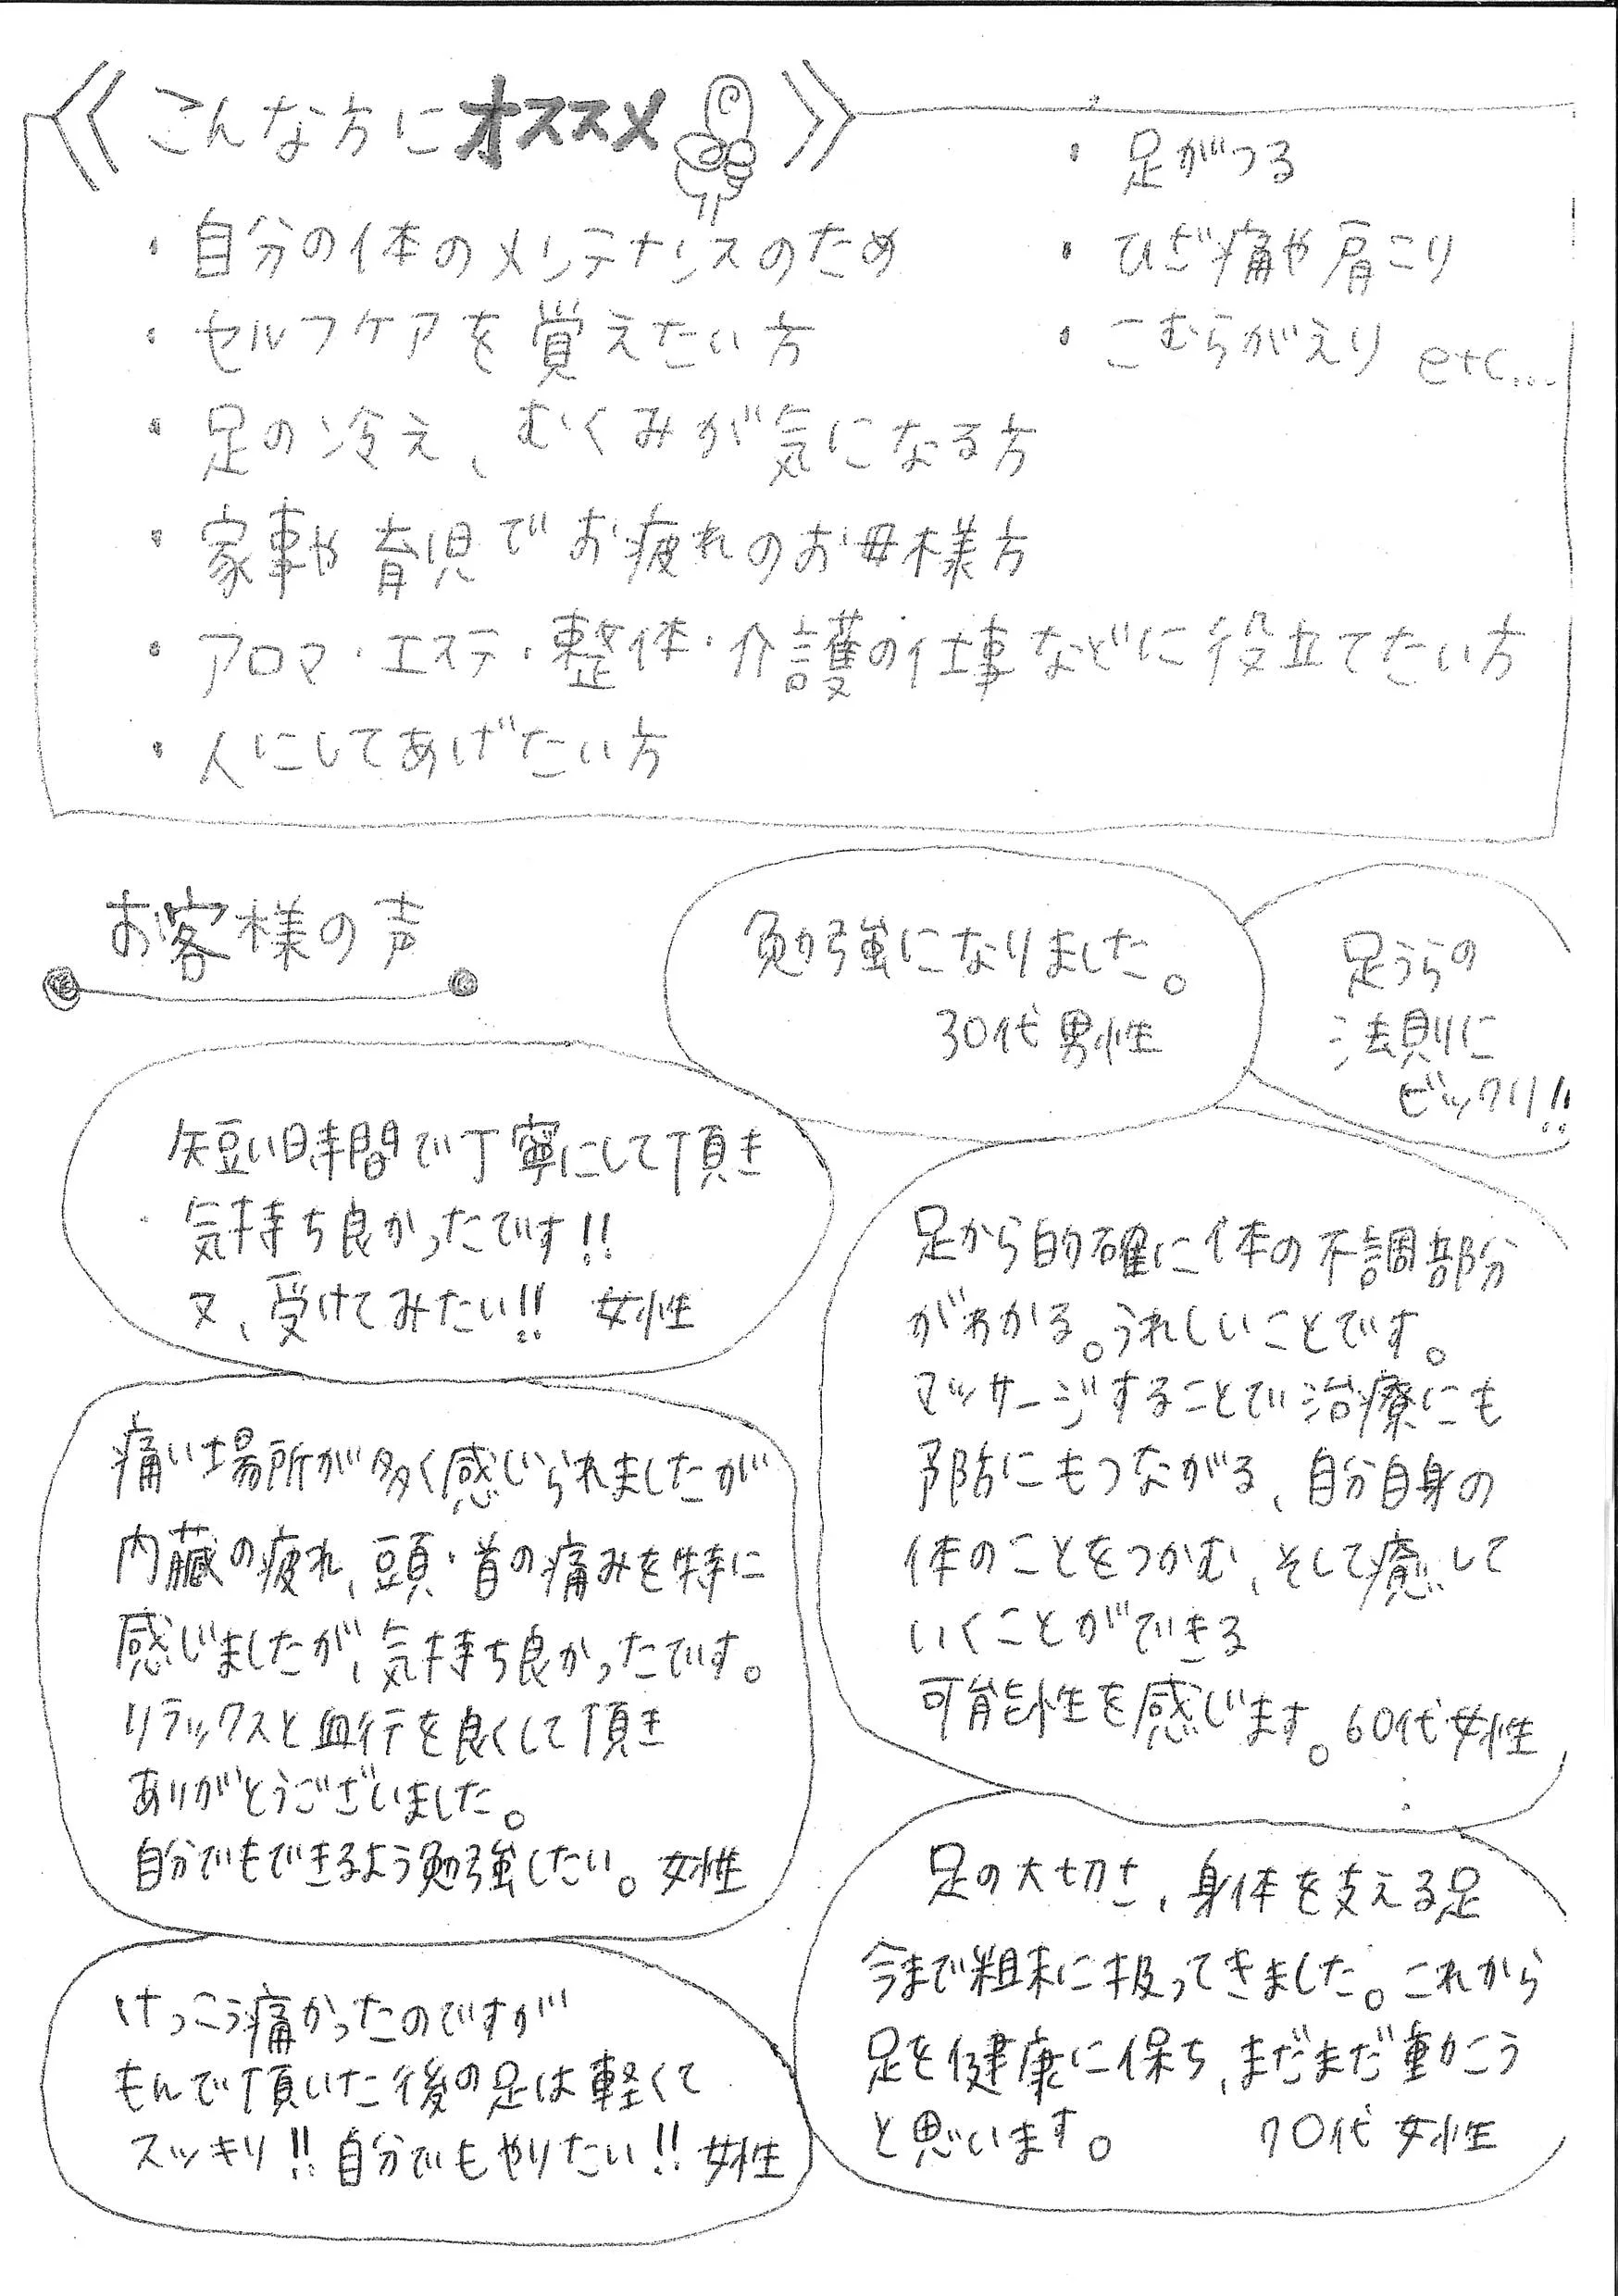 こんな方にオススメ
・自分の体のメンテナンスのため
・セルフケアを覚えたい方
・足の冷え、むくみが気になる方
・家事や育児でお疲れのお母様方
・アロマ・エステ・整体・介護の仕事などに役立てたい方
・人にしてあげたい方
・足がつる
・ひざ痛や肩こり
・こむらがえり etc...
お客様の声
勉強になりました。
30代 男性
足うらの
法則に
ビックリ!!
短い時間で丁寧にして頂き
気持ち良かったです!!
又、受けてみたい!! 女性
足から的確に体の不調部分
がわかる。うれしいことです。
マッサージすることで治療にも
予防にもつながる、自分自身の
体のことをつかむ、そして癒して
いくことができる
可能性を感じます。60代 女性
痛い場所が多く感じられましたが
内臓の疲れ、頭・首の痛みを特に
感じましたが、気持ち良かったです。
リラックスと血行を良くして頂き
ありがとうございました。
自分でもできるよう勉強したい。女性
足の大切さ、身体を支える足
今まで粗末に扱ってきました。これから
足を健康に保ち、まだまだ動こう
と思います。 70代 女性
けっこう痛かったのですが
もんで頂いた後の足は軽くて
スッキリ!! 自分でもやりたい!! 女性